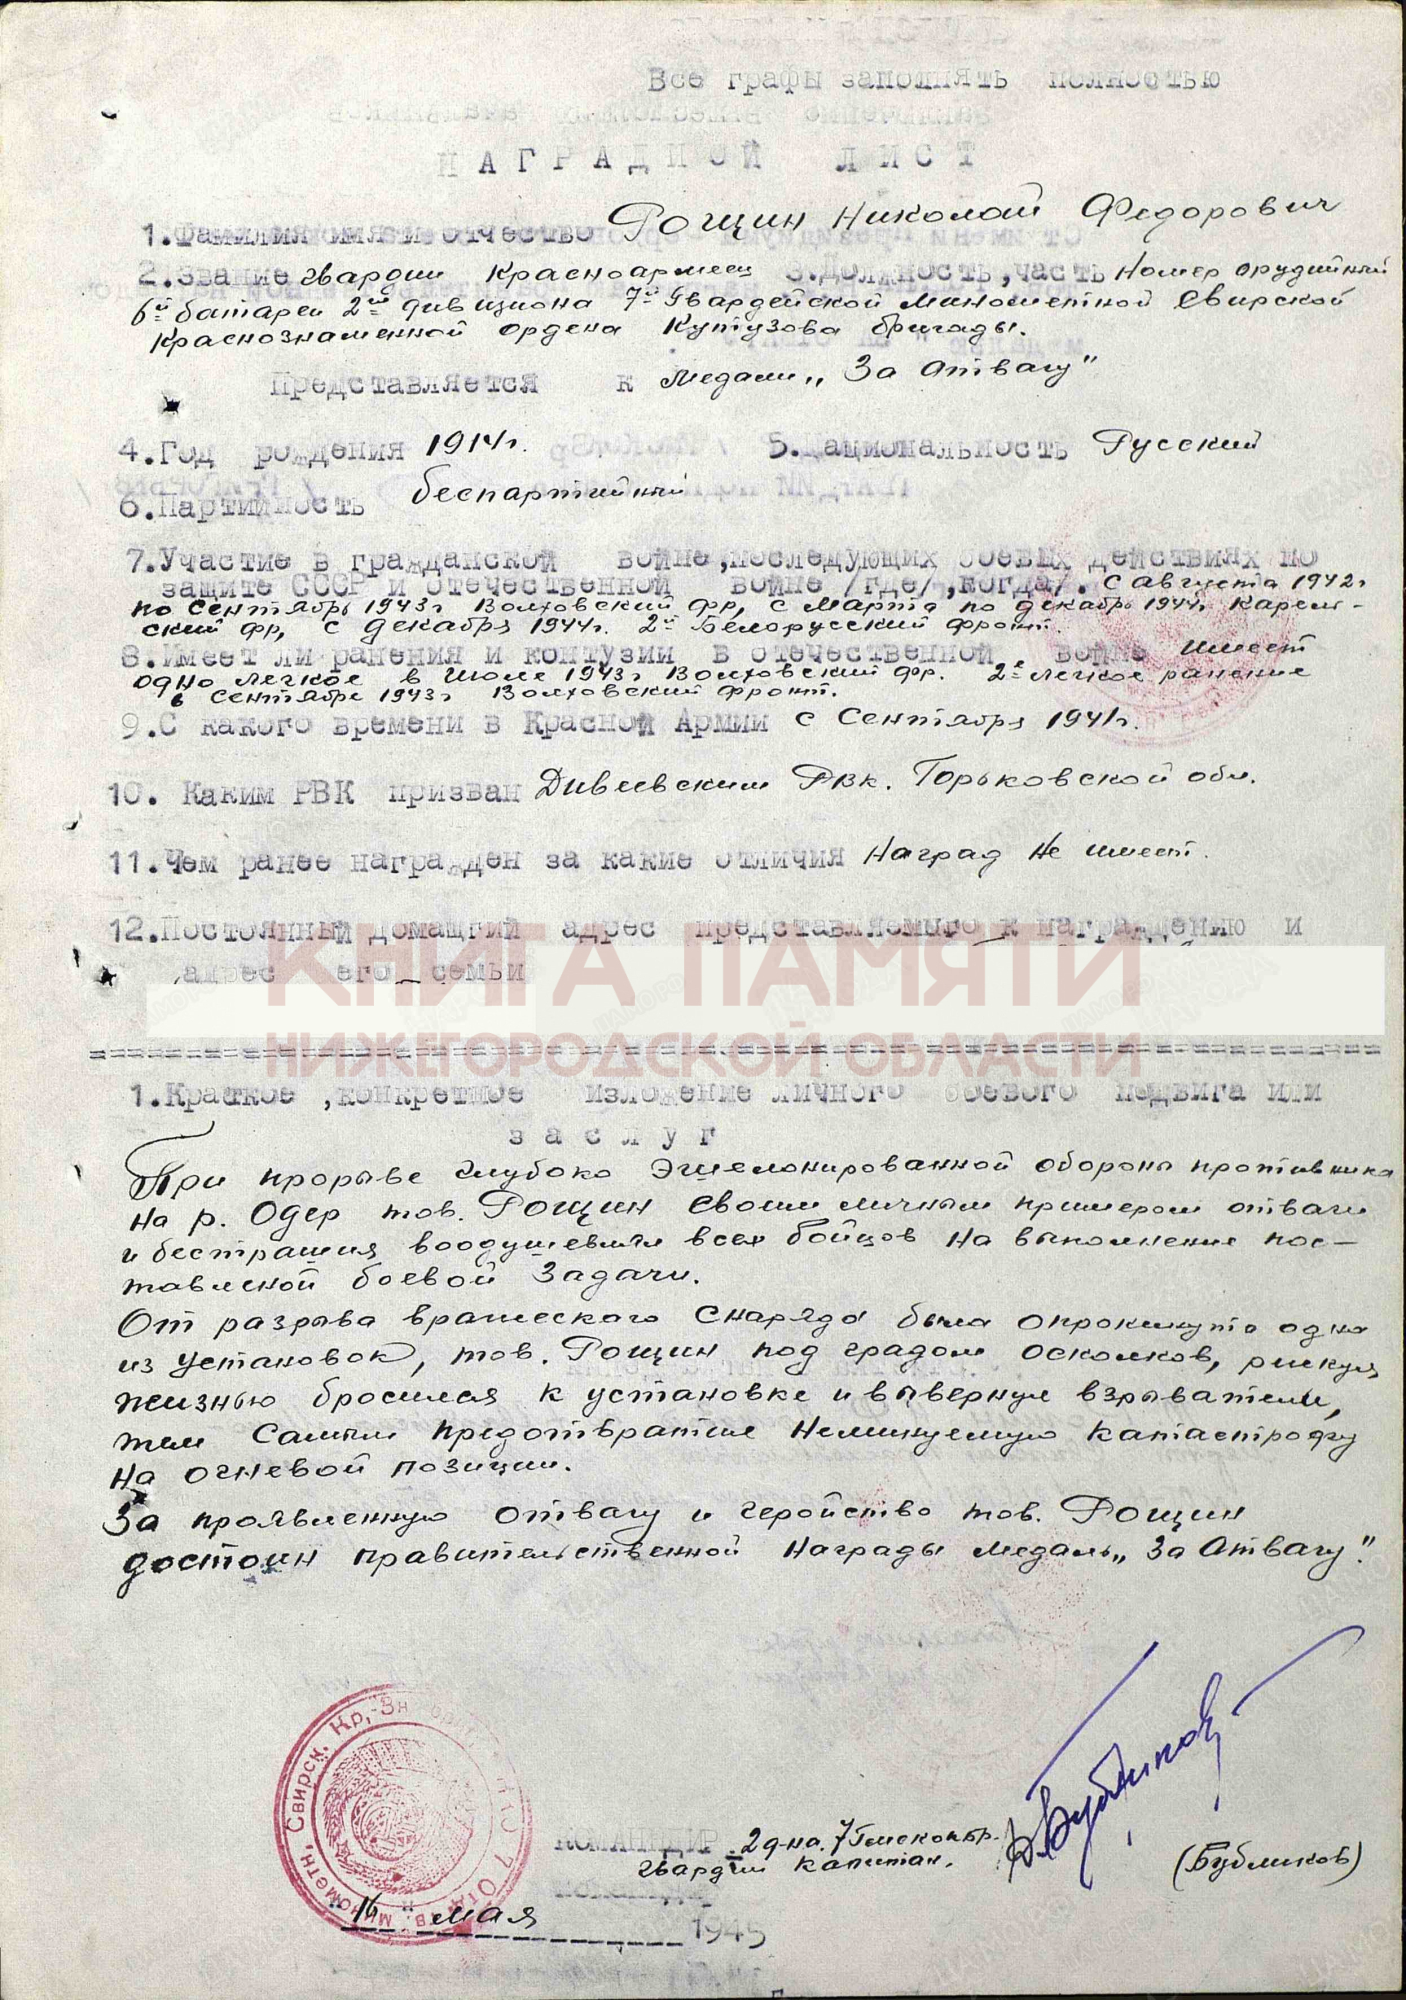 Все графы заполнять полностью
НАГРАДНОЙ ЛИСТ
1.Фамилия имя и отчество Рощин Николай Федорович
2.Звание гвардии Красноармеец 3.Должность, часть Номер орудийный
6й батареи 2го дивизиона 7й Гвардейской Минометной Свирской
Краснознаменной ордена Кутузова бригады.
Представляется к Медали „За Отвагу"
4.Год рождения 1914г. 5.Национальность Русский
6.Партийность беспартийный
7.Участие в гражданской войне, последующих боевых действиях по
защите СССР и отечественной войне /где/, когда/. с Августа 1942г
по Сентябрь 1943г Волховский фр, с Марта по декабрь 1944г Карель-
ский фр, с декабря 1944г. 2й Белорусский фронт.
8.Имеет ли ранения и контузии в отечественной войне имеет
одно легкое в Июле 1943г Волховский фр. 2е легкое ранение
в Сентябре 1943г Волховский фронт.
9.С какого времени в Красной Армии с Сентября 1941г.
10. Каким РВК призван Дивеевским Рвк. Горьковской обл.
11.Чем ранее награжден за какие отличия Наград не имеет.
12.Постоянный домашний адрес представляемого к награждению и
адрес его семьи
КНИГА ПАМЯТИ
НИЖЕГОРОДСКОЙ ОБЛАСТИ
1.Краткое ,конкретное изложение личного боевого подвига или
заслуг
При прорыве глубоко эшелонированной обороны противника
на р. Одер тов. Рощин своим личным примером отваги
и бесстрашия воодушевлял всех бойцов на выполнение пос-
тавленой боевой задачи.
От разрыва вражеского снаряда была опрокинута одна
из установок, тов. Рощин под градом осколков, рискуя
жизнью бросился к установке и вывернул взрыватели,
тем самым предотвратил неминуемую катастрофу
на огневой позиции.
За проявленную отвагу и геройство тов. Рощин
достоин правительственной награды медаль „За Отвагу".
КОМАНДИР 2 д-на. 7 Гв.
гвардии капитан.
(Бубликов)
"16" мая 1945